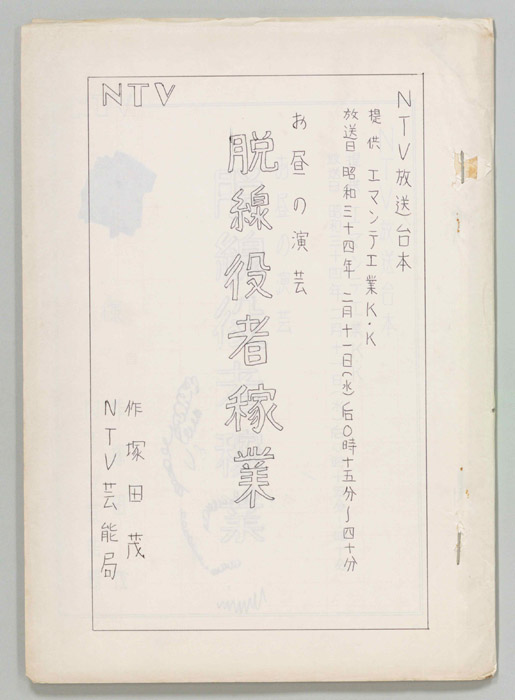 NTV放送台本
提供 エマンテ工業K.K
放送日 昭和三十四年 二月十一日(水)后0時十五分〜四十分
お昼の演芸
脱線役者稼業
作 塚田茂
NTV芸能局
NTV